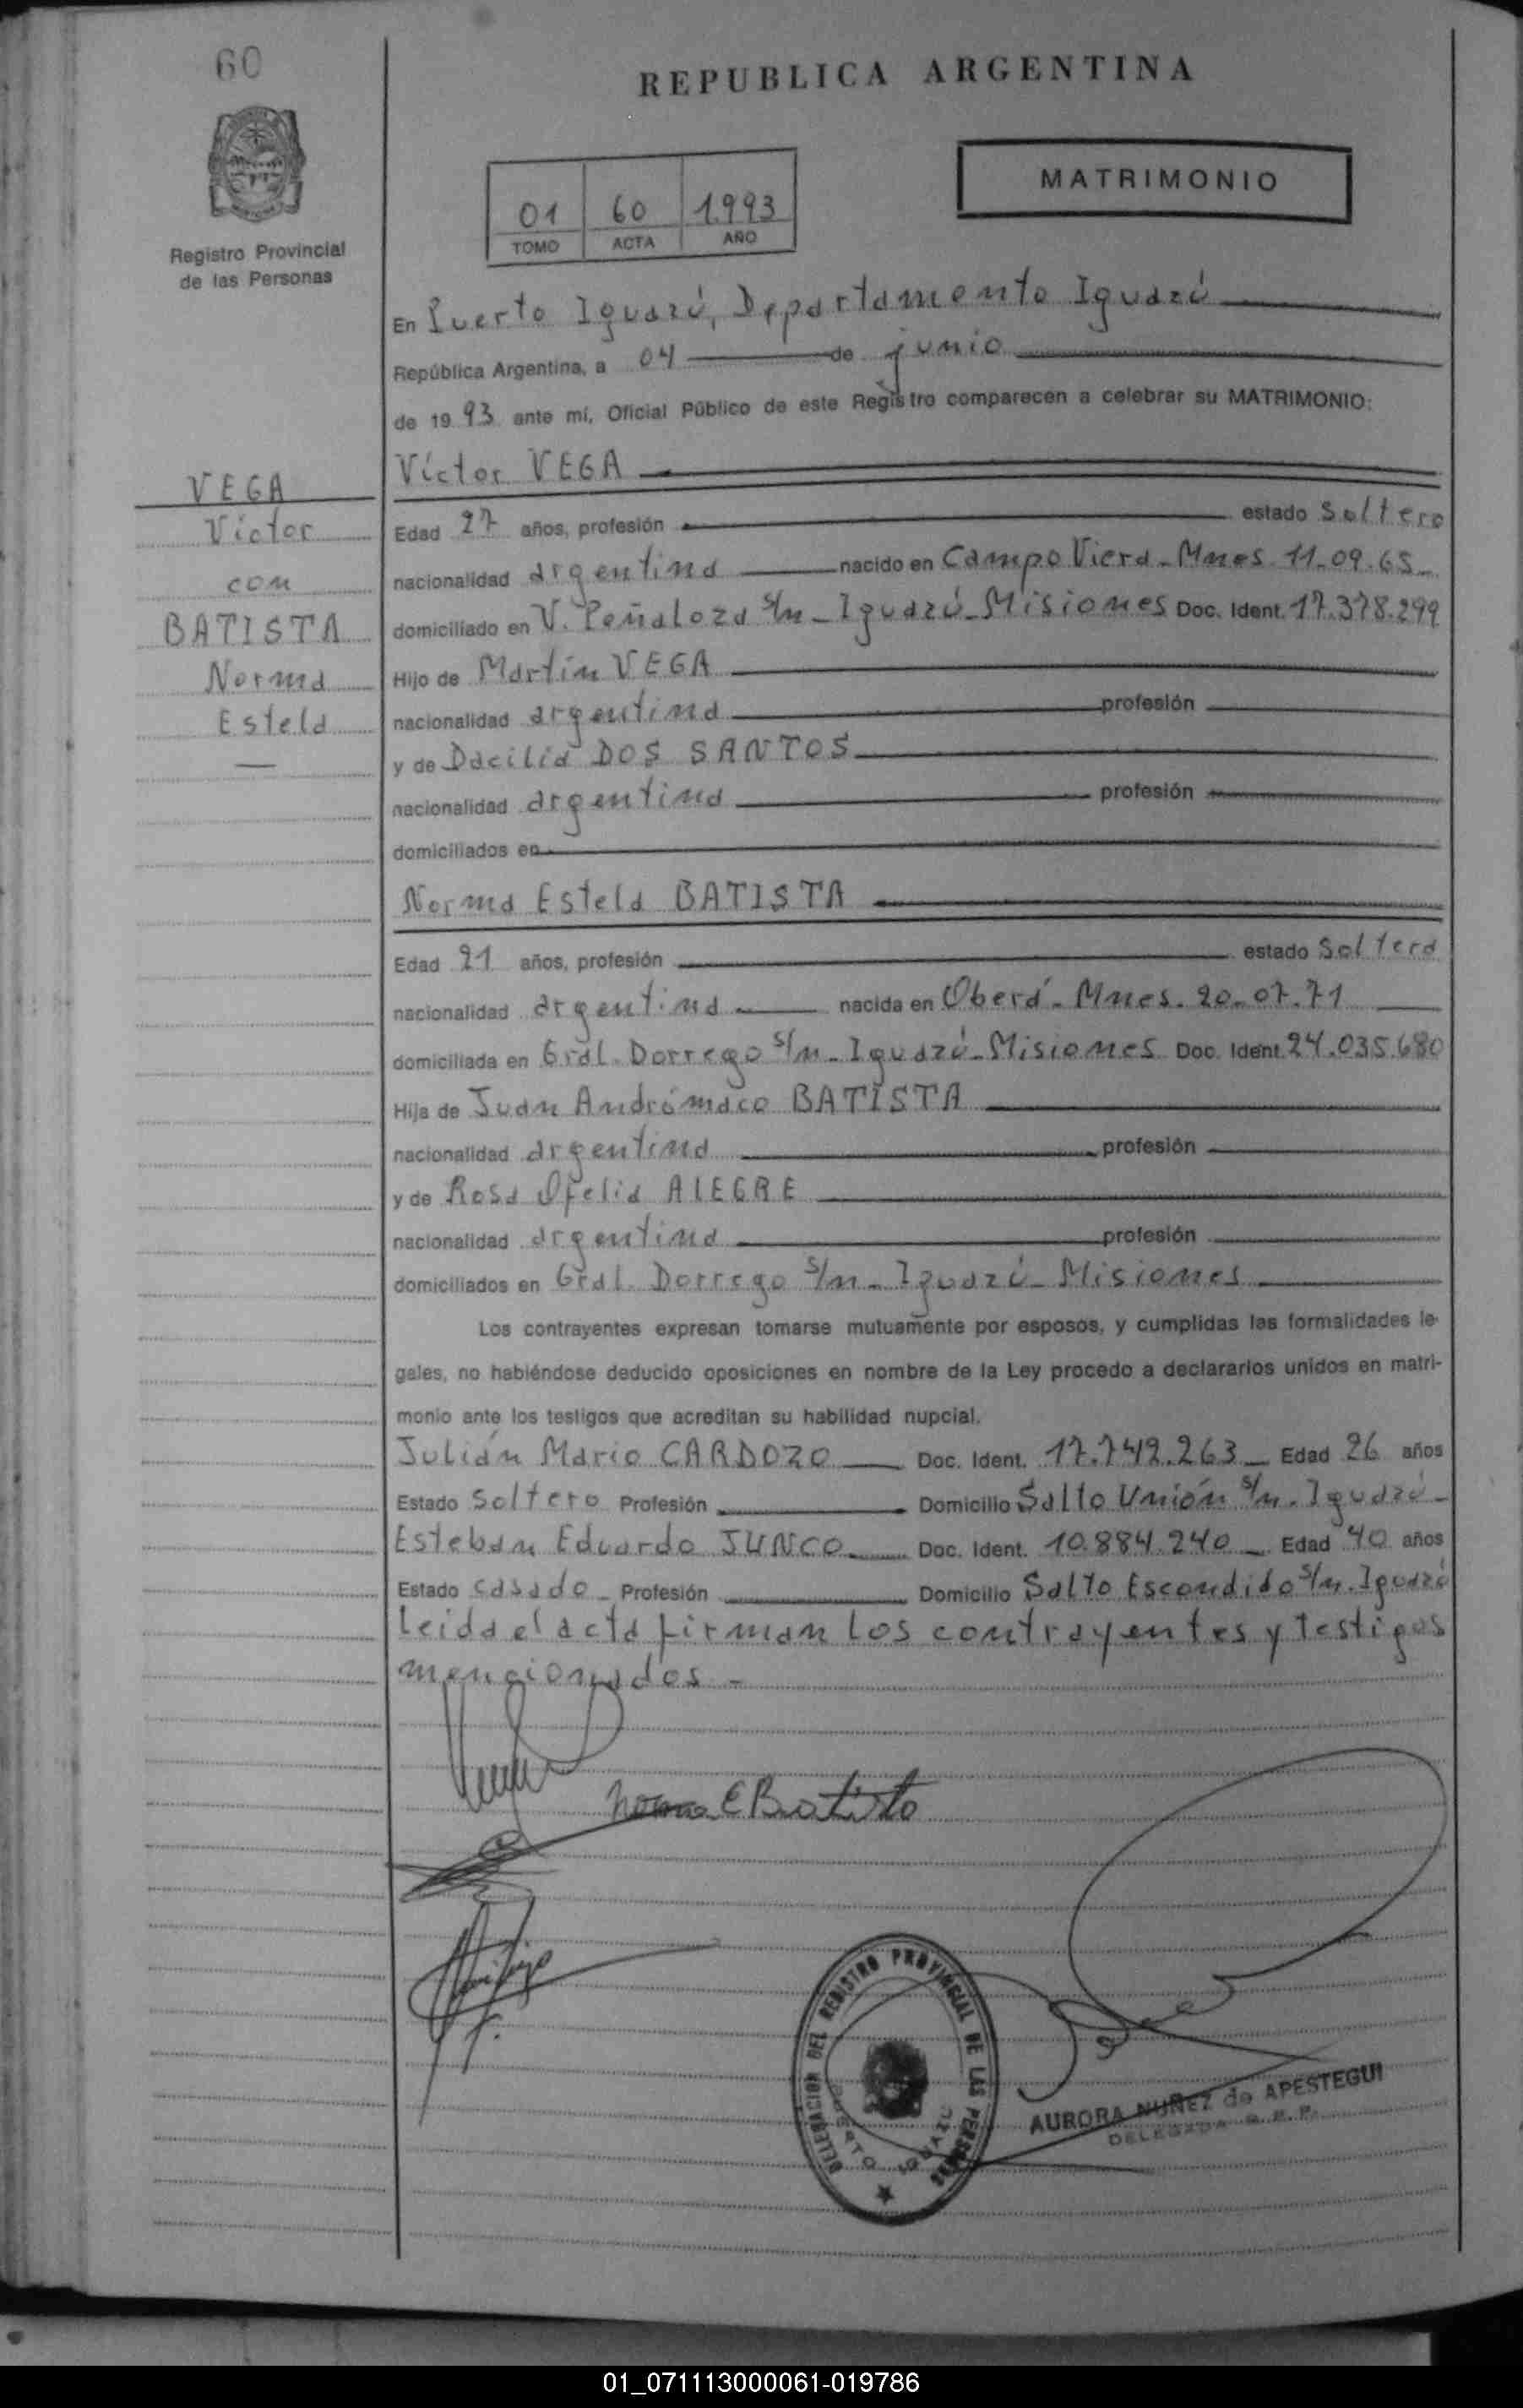 60
REPUBLICA ARGENTINA
MATRIMONIO
01 60 1993
TOMO ACTA AÑO
Registro Provincial
de las Personas
En Puerto Iguazú, Departamento Iguazú
República Argentina, a 04 de junio
de 1993 ante mí, Oficial Público de este Registro comparecen a celebrar su MATRIMONIO:
VEGA
Víctor
con
BATISTA
Norma
Estela
Víctor VEGA
Edad 27 años, profesión estado Soltero
nacionalidad argentina nacido en Campo Viera - Mnes. 11-09-65
domiciliado en V. Peñaloza s/n - Iguazú - Misiones Doc. Ident. 17.378.299
Hijo de Martín VEGA
nacionalidad argentina profesión
y de Dacilia DOS SANTOS
nacionalidad argentina profesión
domiciliados en
Norma Estela BATISTA
Edad 21 años, profesión estado Soltera
nacionalidad argentina nacida en Oberá - Mnes. 20-07-71
domiciliada en Gral. Dorrego s/n - Iguazú - Misiones Doc. Ident. 24.035.680
Hija de Juan Andrómaco BATISTA
nacionalidad argentina profesión
y de Rosa Ofelia ALEGRE
nacionalidad argentina profesión
domiciliados en Gral. Dorrego s/n - Iguazú - Misiones
Los contrayentes expresan tomarse mutuamente por esposos, y cumplidas las formalidades le-
gales, no habiéndose deducido oposiciones en nombre de la Ley procedo a declararlos unidos en matri-
monio ante los testigos que acreditan su habilidad nupcial.
Julián Mario CARDOZO Doc. Ident. 17.742.263 Edad 26 años
Estado soltero Profesión Domicilio Salto Unión s/n. Iguazú
Esteban Eduardo JUNCO Doc. Ident. 10.884.240 Edad 40 años
Estado casado Profesión Domicilio Salto Escondido s/n. Iguazú
Leida el acta firman los contrayentes y testigos
mencionados.-
Norma E Batista
DELEGACION DEL REGISTRO PROVINCIAL DE LAS PERSONAS
PUERTO IGUAZU
AURORA NUÑEZ de APESTEGUI
DELEGADA R. P. P.
01_071113000061-019786